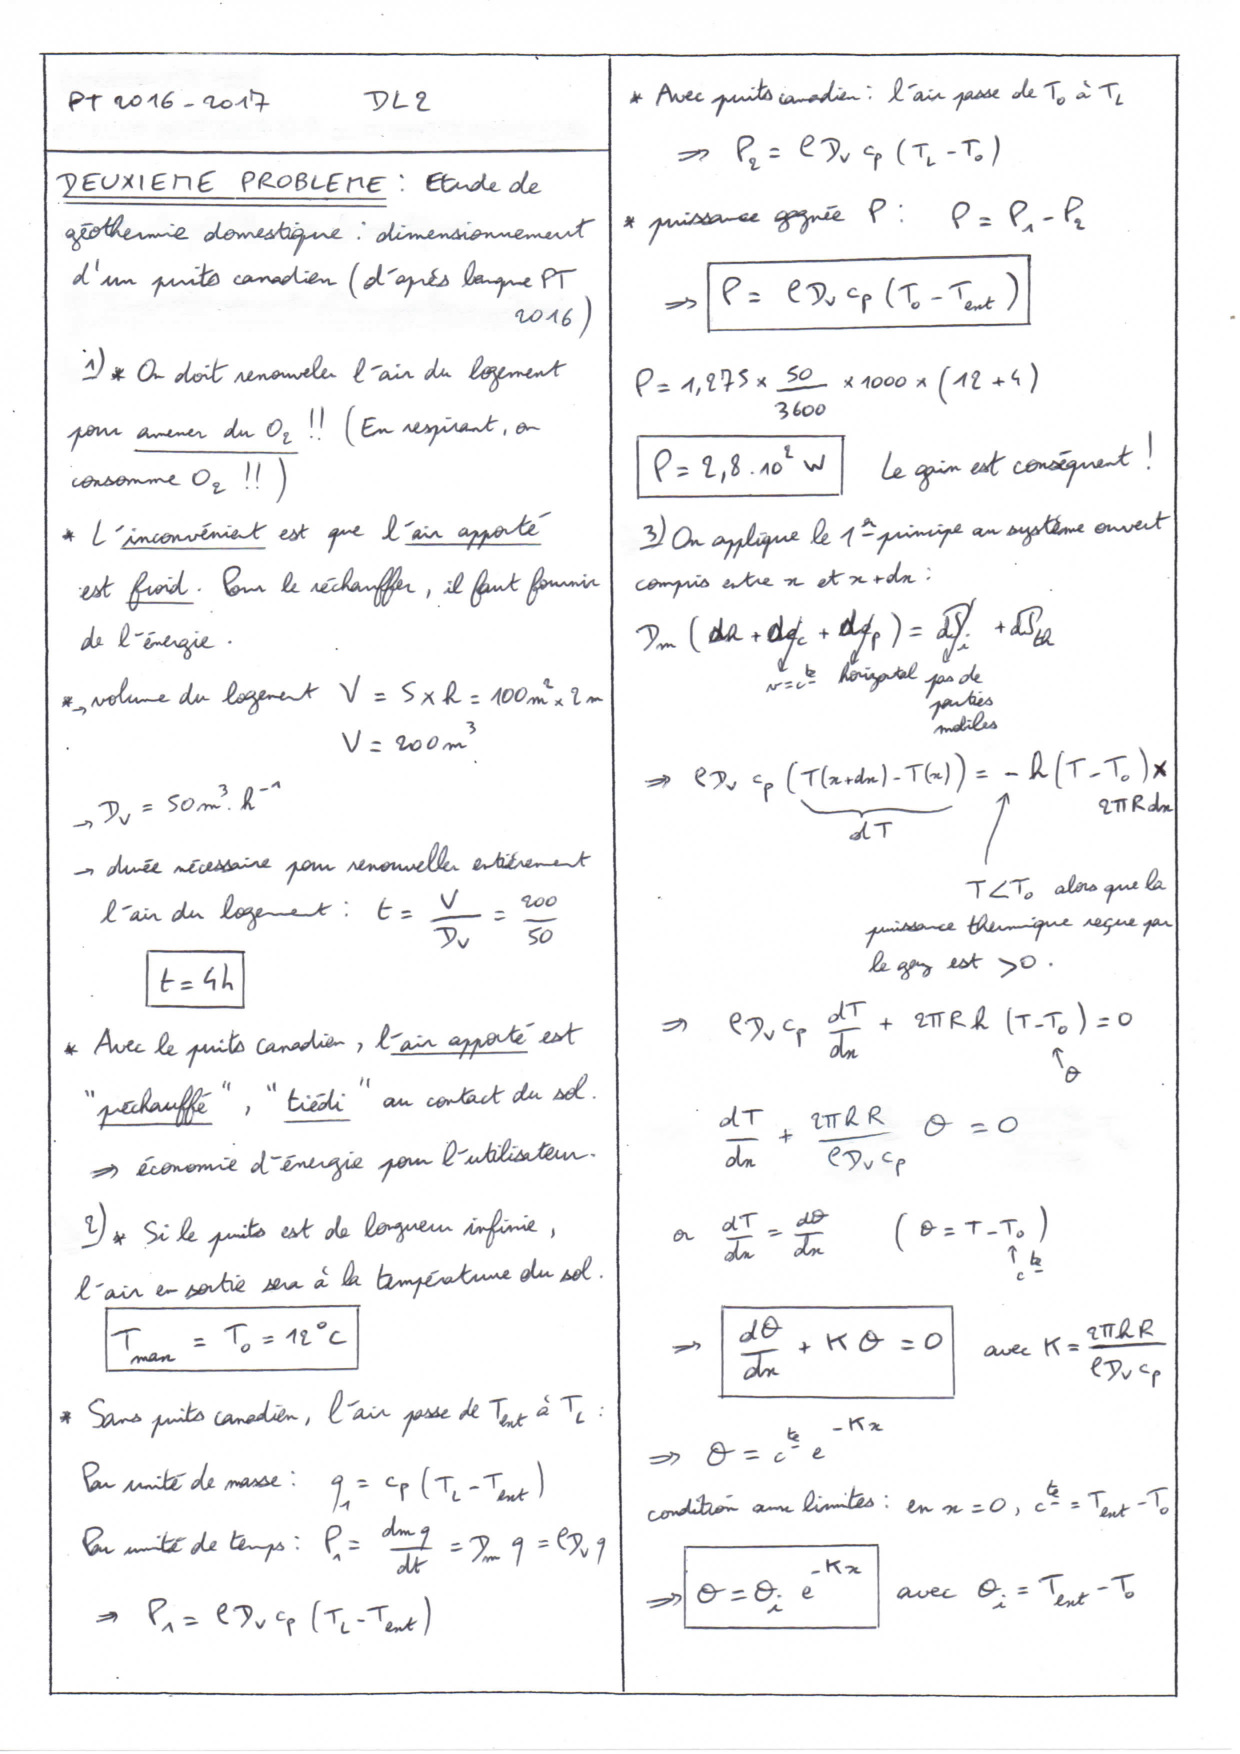 PT 2016-2017 DL2
DEUXIEME PROBLEME : Etude de
géothermie domestique : dimensionnement
d'un puits canadien (d'après banque PT
2016)
1) * On doit renouveler l'air du logement
pour amener du O₂ !! (En respirant, on
consomme O₂ !!)
* L'inconvénient est que l'air apporté
est froid. Pour le réchauffer, il faut fournir
de l'énergie.
* → volume du logement V = S × h = 100 m² × 2 m
V = 200 m³
→ D_v = 50 m³. h⁻¹
→ durée nécessaire pour renouveller entièrement
l'air du logement : t = V / D_v = 200 / 50
t = 4h
* Avec le puits canadien, l'air apporté est
"péchauffé", "tiédi" au contact du sol.
⇒ économie d'énergie pour l'utilisateur.
2) * Si le puits est de longueur infinie,
l'air en sortie sera à la température du sol.
T_max = T₀ = 12°C
* Sans puits canadien, l'air passe de T_ent à T_L :
Par unité de masse : q₁ = c_p (T_L - T_ent)
Par unité de temps : P₁ = dm q / dt = D_m q = ρ D_v q
⇒ P₁ = ρ D_v c_p (T_L - T_ent)
* Avec puits canadien : l'air passe de T₀ à T_L
⇒ P₂ = ρ D_v c_p (T_L - T₀)
* puissance gagnée P : P = P₁ - P₂
⇒ P = ρ D_v c_p (T₀ - T_ent)
P = 1,275 × 50 / 3600 × 1000 × (12 + 4)
P = 2,8 . 10² W Le gain est conséquent !
3) On applique le 1er principe au système ouvert
compris entre x et x+dx :
D_m (dh + de_c + de_p) = dP_i + dP_th
v = cte horizontal pas de
parties
mobiles
⇒ ρ D_v c_p (T(x+dx) - T(x)) = - h (T - T₀) ×
2πR dx
dT
T < T₀ alors que la
puissance thermique reçue par
le gaz est > 0.
⇒ ρ D_v c_p dT/dx + 2πR h (T - T₀) = 0
↑ θ
dT/dx + 2πhR / ρ D_v c_p θ = 0
or dT/dx = dθ/dx (θ = T - T₀)
↑ cte
⇒ dθ/dx + K θ = 0 avec K = 2πhR / ρ D_v c_p
⇒ θ = cte e^(-Kx)
condition aux limites : en x = 0, cte = T_ent - T₀
⇒ θ = θ_i e^(-Kx) avec θ_i = T_ent - T₀